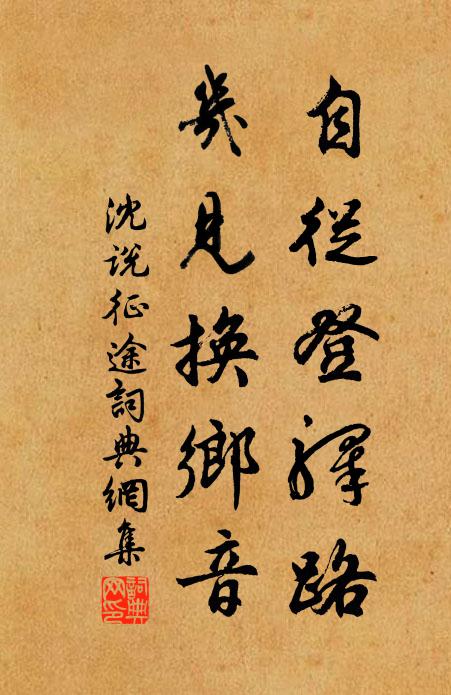 自從登驛路
幾見換鄉音
沈説征途詞典網集
詞典
网印